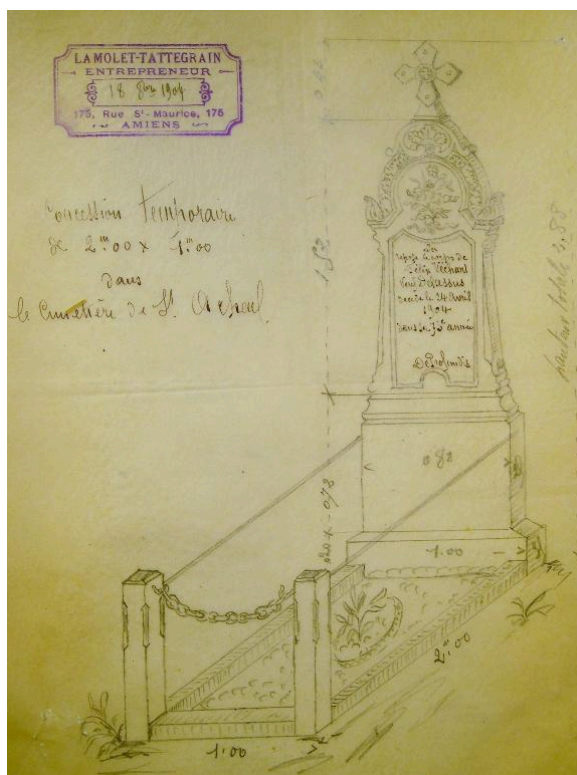 LAMOLET-TATTEGRAIN
ENTREPRENEUR
18 8bre 1904
175, Rue St-Maurice, 175
AMIENS
Concession temporaire
de 2m00 x 1m00
dans
le Cimetière de St Acheul
Ici
repose le corps de
Félix Véchart
décédé le 24 Avril
1904
dans sa 75e année
De Profundis
1.52
hauteur totale 2.85
0.82
1.00
2m00
1.00